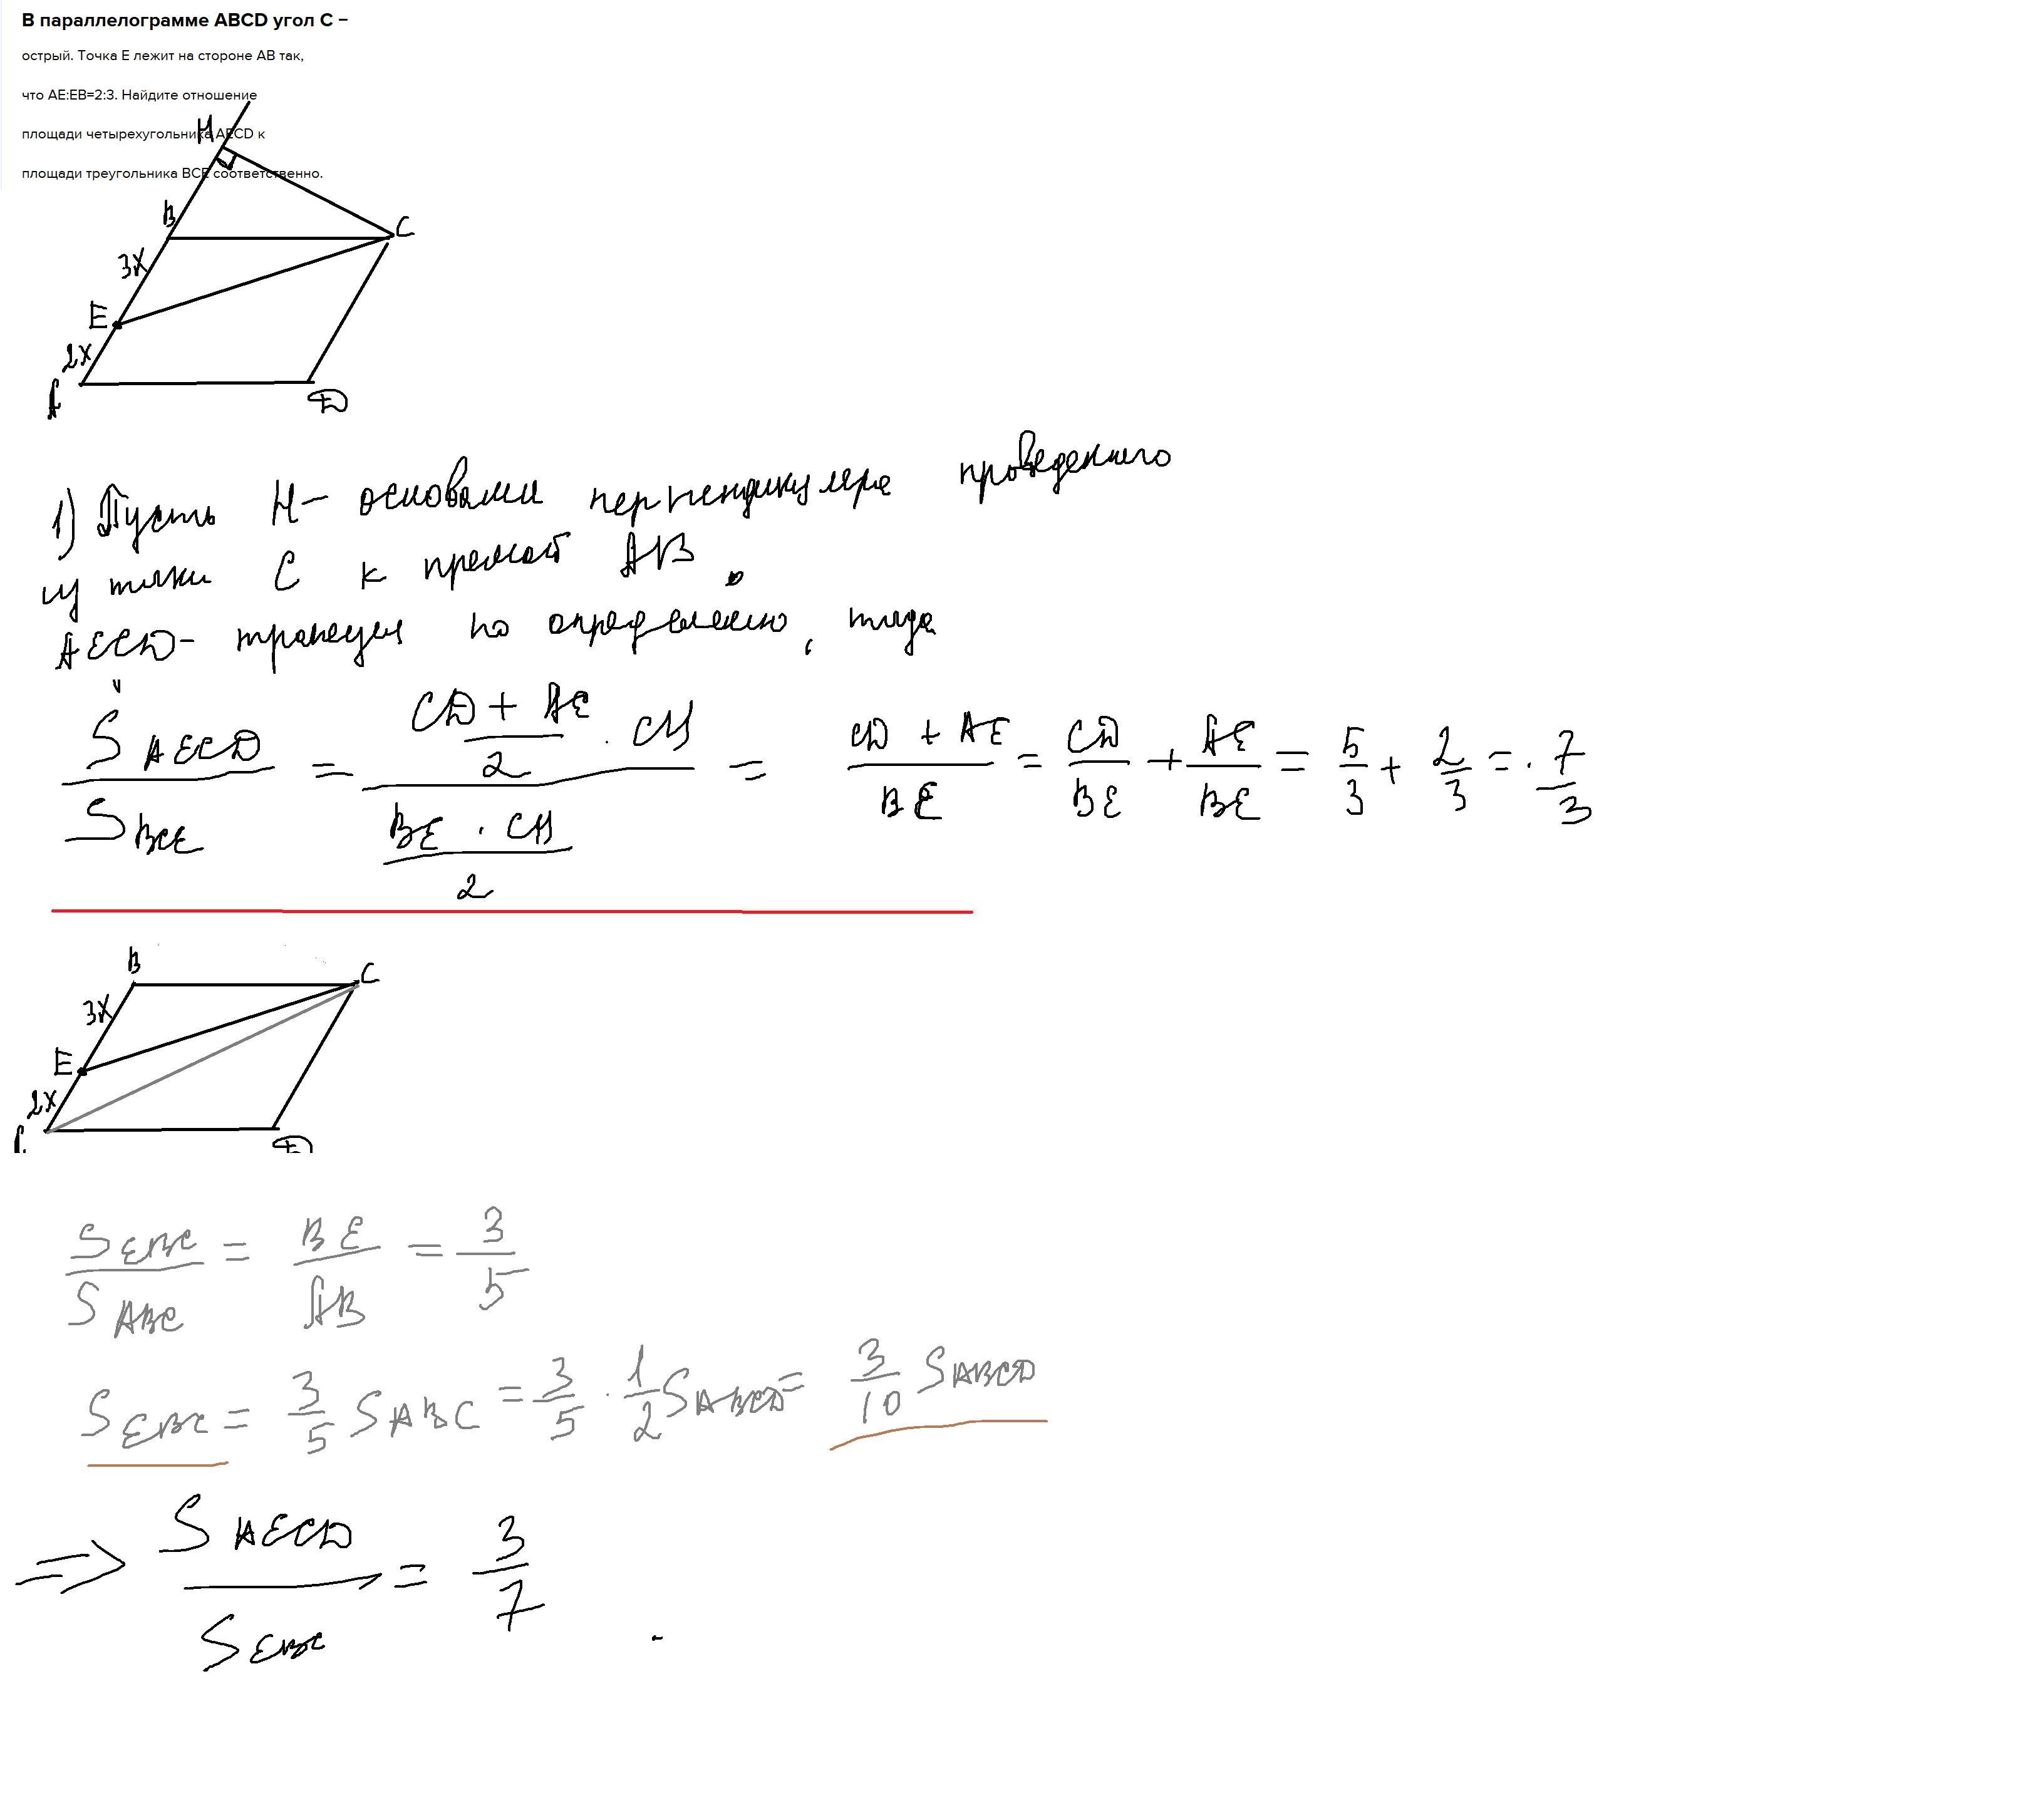 В параллелограмме ABCD угол C −
острый. Точка E лежит на стороне AB так,
что AE:EB=2:3. Найдите отношение
площади четырехугольника AECD к
площади треугольника BCE соответственно.
H
B
C
3X
E
2X
A
D
1) Пусть H - основами перпендикуляра проведенного
из точки C к прямой AB.
AECD - трапеция по определению, тогда
S AECD / S BCE = ((CD + AE)/2 · CH) / ((BE · CH)/2) = (CD + AE)/BE = CD/BE + AE/BE = 5/3 + 2/3 = 7/3
B
C
3X
E
2X
D
S EBC / S ABC = BE / AB = 3/5
S EBC = 3/5 S ABC = 3/5 · 1/2 S ABCD = 3/10 S ABCD
=> S AECD / S EBC = 3/7